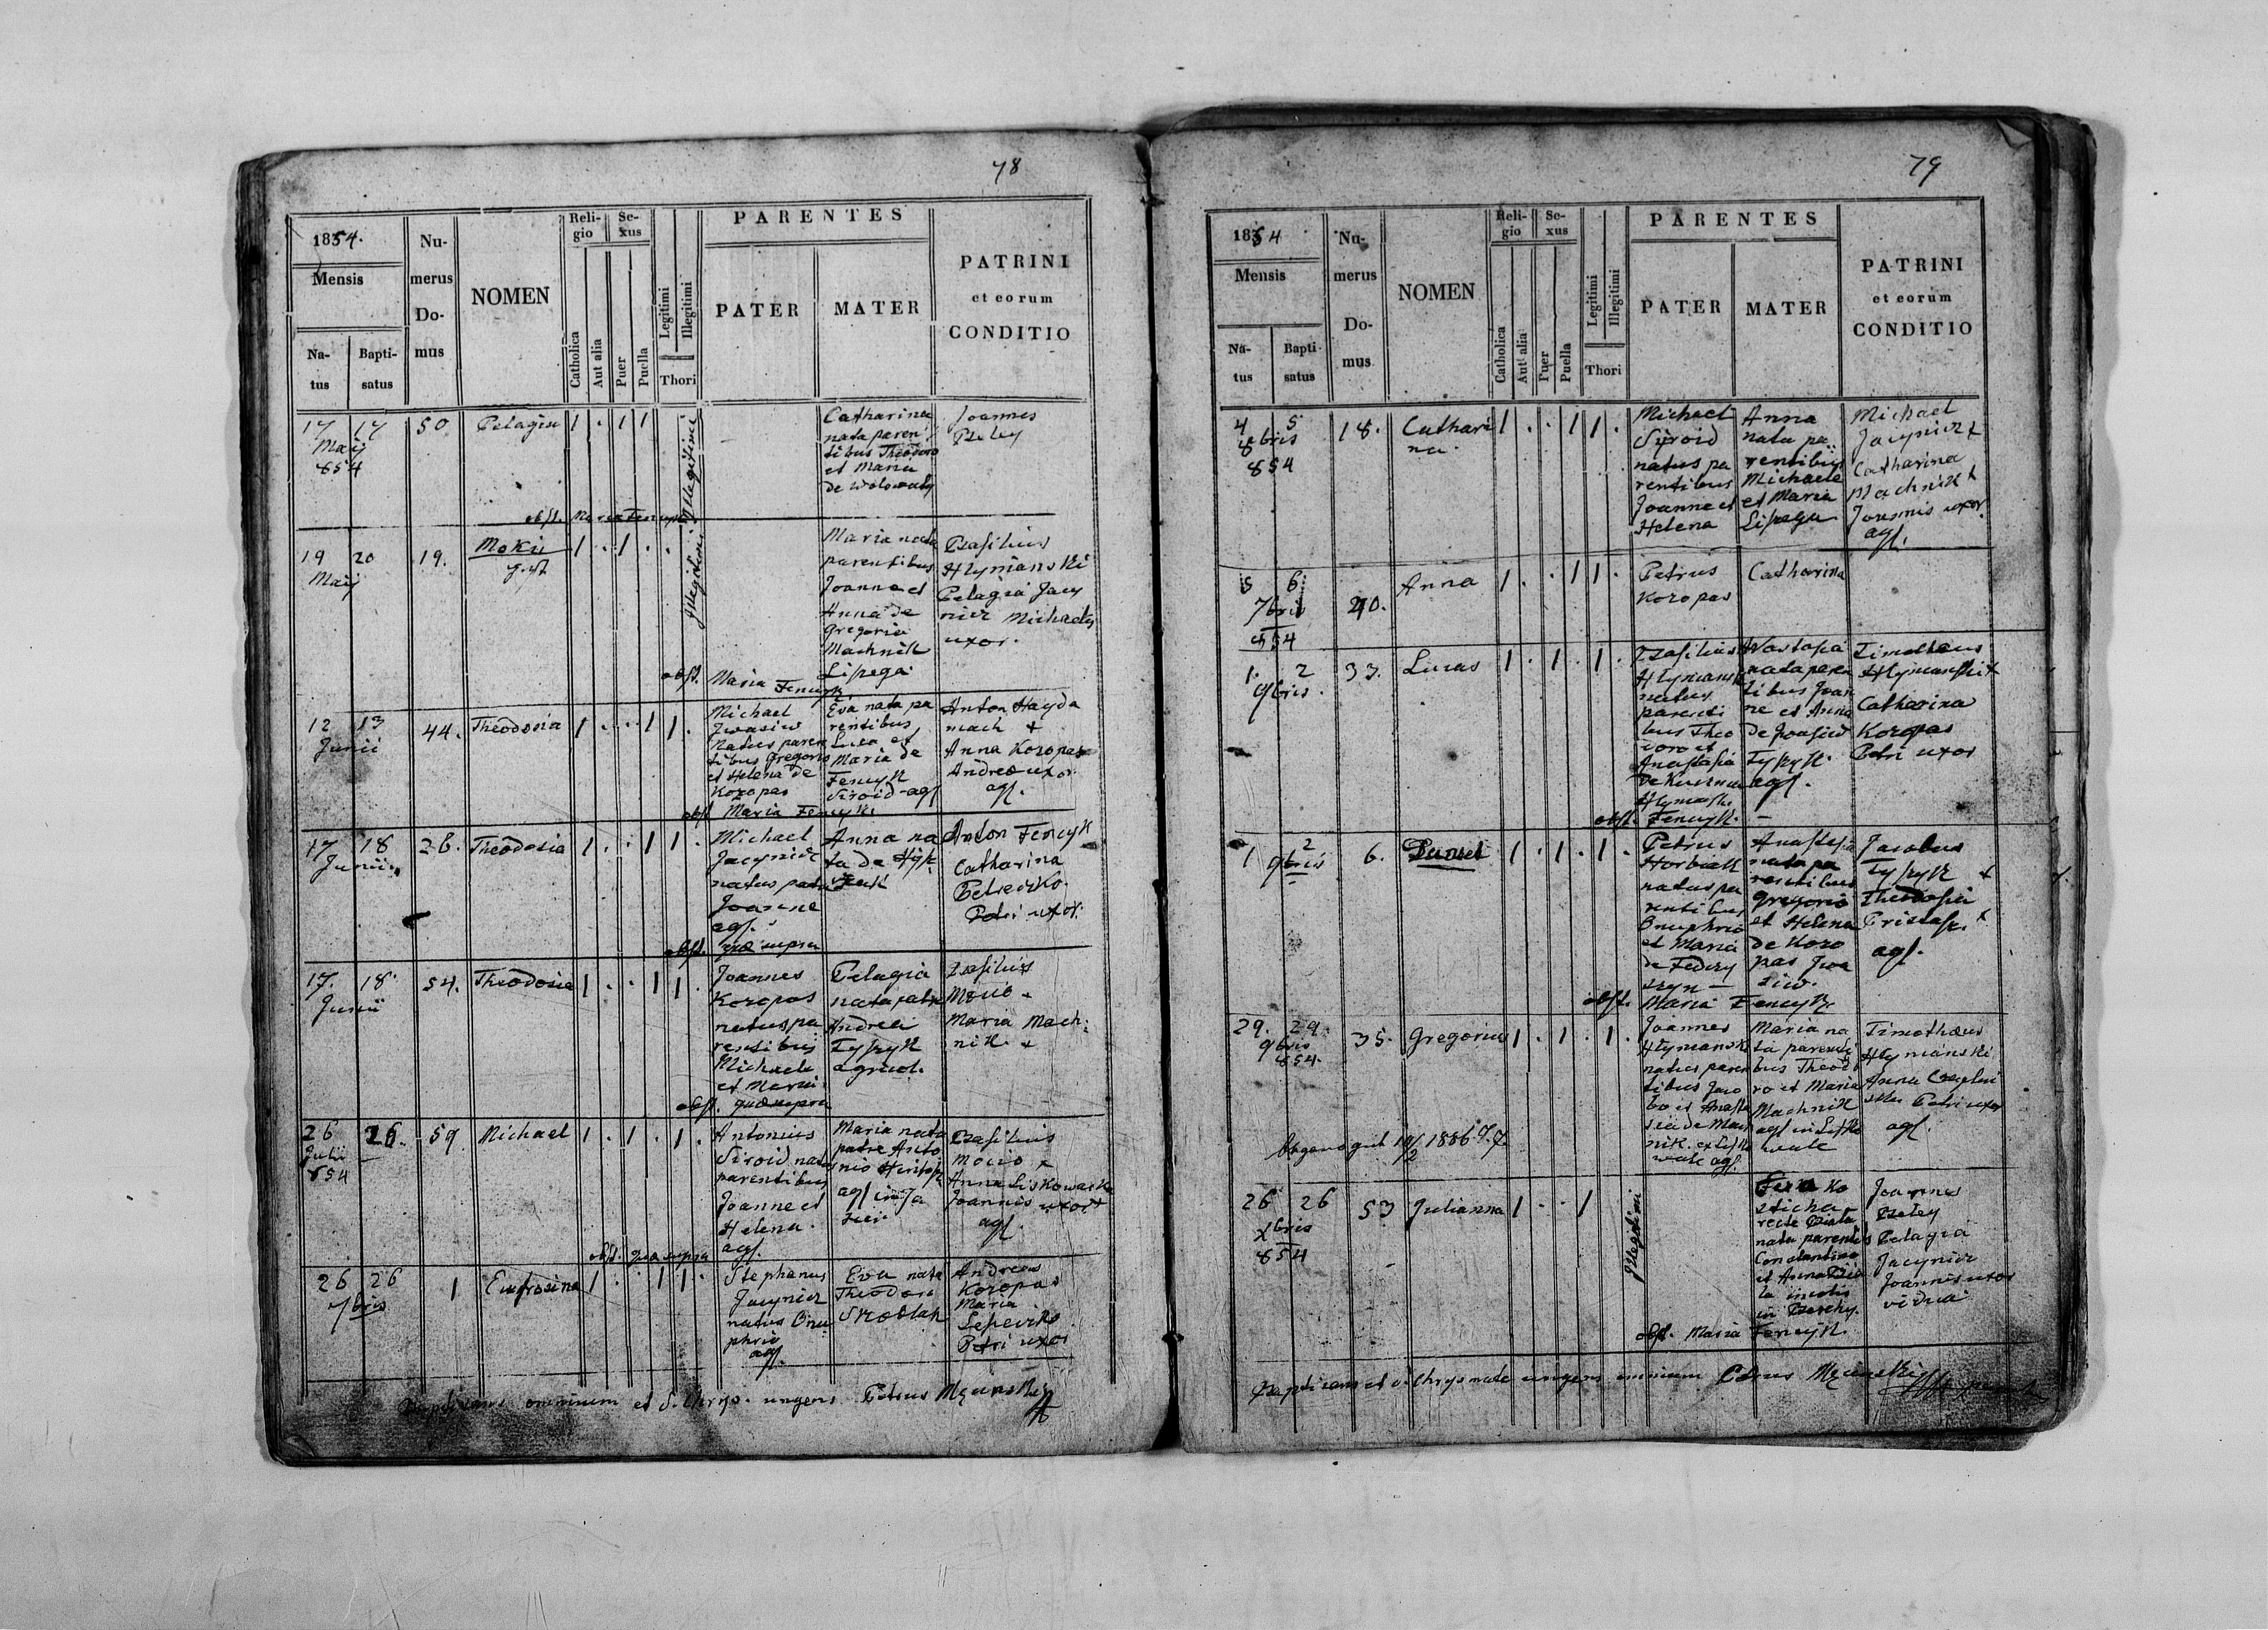 78
1854.
Mensis
Natus
Baptisatus
Numerus Domus
NOMEN
Religio
Catholica
Aut alia
Sexus
Puer
Puella
Legitimi
Illegitimi
Thori
PARENTES
PATER
MATER
PATRINI
et eorum
CONDITIO
17 17 50 Pelagia 1 . 1 1
Maij
854
Illegitimi
Catharina
nata paren
tibus Theodoro
et Maria
de
Joannes
obst. Maria Fencyk
19 20 19. Mokij 1 . 1 . .
Maij
Illegitimi
Maria nata
parentibus
Joanne et
Anna de
Gregorio
Machnik
Liszega
Basilius
Hlymanski
Pelagia Jacy
nicz Michaelis
uxor.
obst. Maria Fencyk
12 13 44. Theodosia 1 . . 1 1 .
Junii
Michael
Iwasiw
Natus paren
tibus Gregorio
et Helena de
Koropas
Eva nata pa
rentibus
Luca et
Maria de
Fencyk
Siroid - agl
Anton Hayda
mach +
Anna Koropas
Andreae uxor
agl.
obst Maria Fencyk.
17 18 26. Theodosia 1 . . 1 1 .
Junii
Michael
Jacynicz
natus patre
Joanne
agl.
Anna na
ta de
Anton Fencyk
Catharina
Petrecsko
Petri uxor.
obst. quae supra
17. 18. 54. Theodosia 1 . . 1 1 .
Junii
Joannes
Koropas
natus pa
rentibus
Michaele
et Maria
Pelagia
nata patre
Andrea
Tyszyk
agricol.
Basilius
Mocio +
Maria Mach
nik. +
obst. quae supra
26 26. 59 Michael 1 . 1 . 1 .
Julii
854
Antonius
Siroid natus
parentibus
Joanne et
Helena.
agl.
Maria nata
patre Anto
nio
agl in Ja
Basilius
Mocio +
Anna Liskowacka
Joannis uxor +
agl.
obst. quae supra
26 26 1 Eufrosina 1 . . 1 1 .
7bris
Stephanus
Jacynicz
natus Onu
phrio
agl.
Eva nata
Theodori
Skoblak
Andreas
Koropas
Maria
Petri uxor
Baptisans omnium et S. Chrys. ungens Petrus Męcinski
79
1854
Mensis
Natus
Baptisatus
Numerus Domus
NOMEN
Religio
Catholica
Aut alia
Sexus
Puer
Puella
Legitimi
Illegitimi
Thori
PARENTES
PATER
MATER
PATRINI
et eorum
CONDITIO
4 5 18. Cathari 1 . . 1 1 .
8bris na.
854
Michael
Siroid
natus pa
rentibus
Joanne et
Helena
Anna
nata pa
rentibus
Michaele
et Maria
Liszega
Michael
Jacynicz +
Catharina
Machnik +
Joannis uxor
agl.
5 6 Anna 1 . . 1 1 .
7bris
854
Petrus
Koropas
Catharina
1. 2 33. Lucas 1 . 1 . 1 .
9bris.
Basilius
Hlymanski
natus
parenti
bus Theo
doro et
Anastasia
Nastasia
nata paren
tibus Joan
ne et Anna
de Joasiw
Tyszyk.
agl.
Timotheus
Hlymanski +
Catharina
Koropas
Petri uxor
obst. Fencyk. -
1 2 6. Daniel 1 . 1 . 1 .
9bris
Petrus
Horbiak
natus pa
rentibus
Onuphrio
et Maria
de
Anastasia
nata pa
rentibus
Gregorio
et Helena
de Koro
pas Iwa
siw.
Jacobus
Tyszyk +
Theodosia
Pristasz. +
agl.
obst. Maria Fencyk.
29. 29. 35. Gregorius 1 . 1 . 1 .
9bris
854.
Joannes
Hlymanski
natus paren
tibus Jaco
bo et Anasta
sia de Mach
nik.
agl.
Maria na
ta parenti
bus Theod
ro et Maria
Machnik
agl in
Timotheus
Hlymanski
Anna
Petri uxor
agl.
26 26 53 Julianna 1 . . 1
xbris
854
Illegitimi
Eva Ko
sticha
recte
nata parentibus
Constantino
et Anna
in
Joannes
Pelagia
Jacynicz
Joannis uxor
vidua
obst. Maria Fencyk.
Baptisans et S. Chrysmate ungens omnium Petrus Męcinski